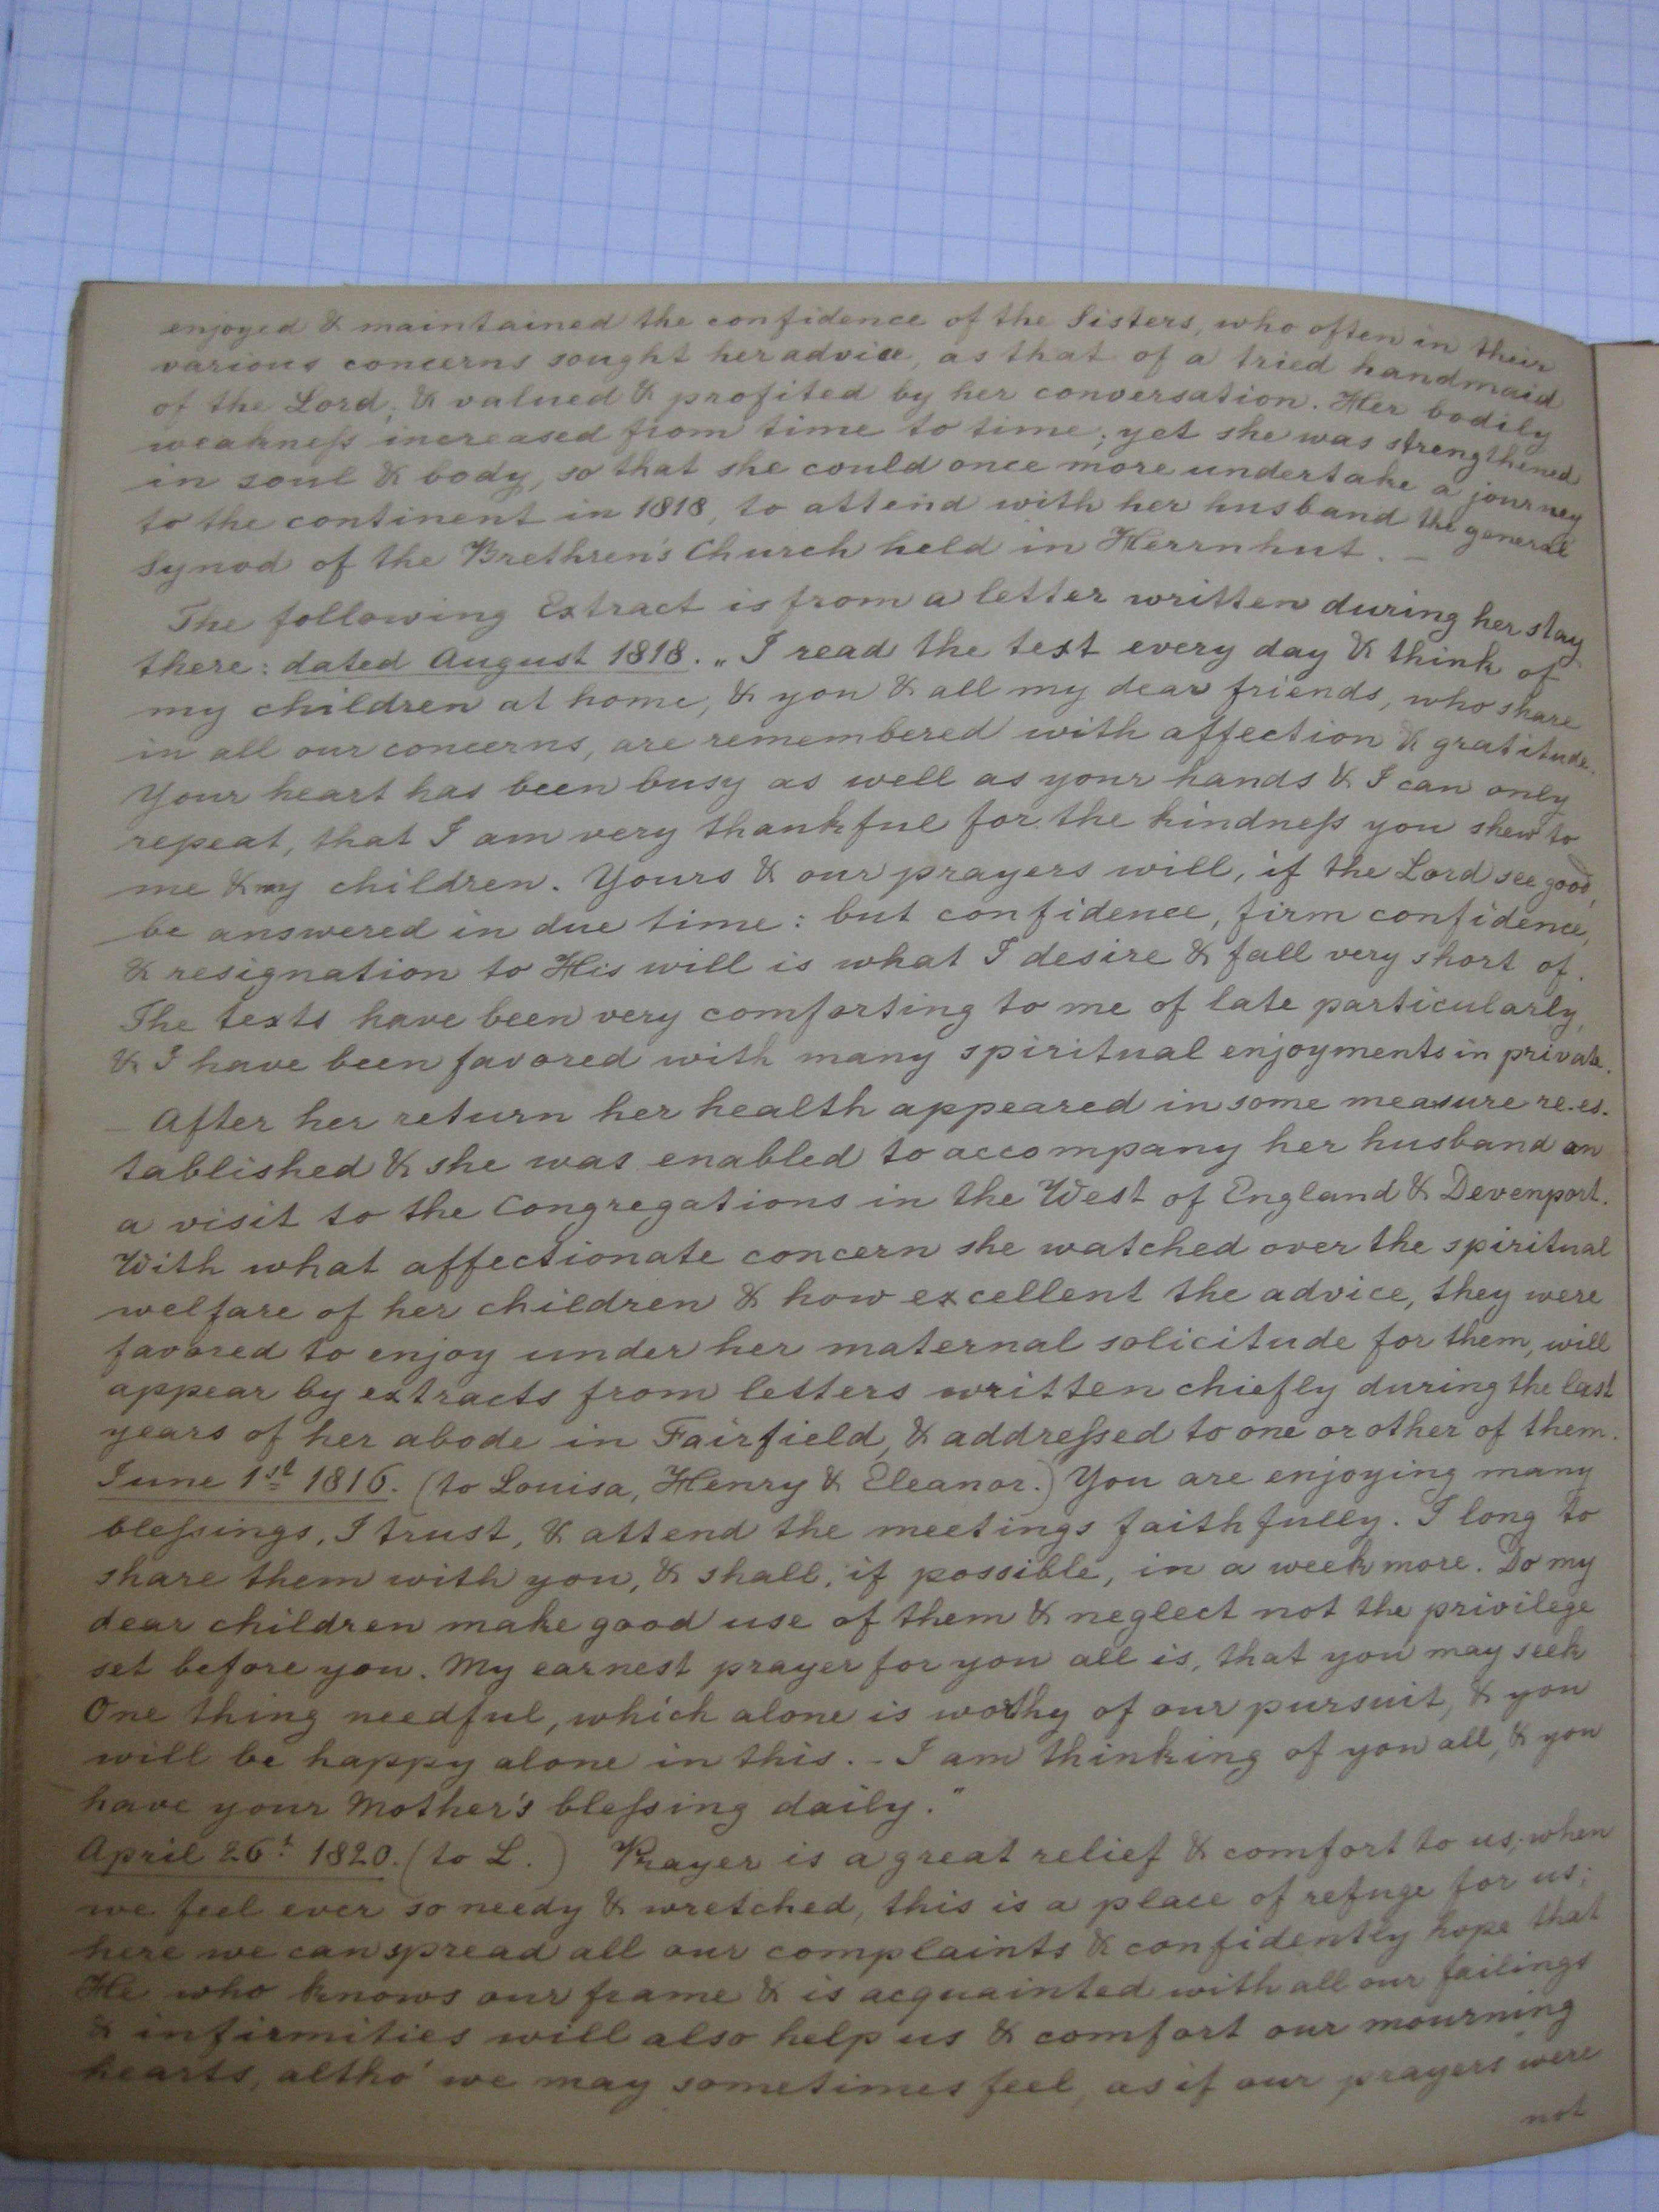 enjoyed & maintained the confidence of the Sisters, who often in their
various concerns sought her advice, as that of a tried handmaid
of the Lord, & valued & profited by her conversation. Her bodily
weakneſs increased from time to time; yet she was strengthened
in soul & body, so that she could once more undertake a journey
to the continent in 1818, to attend with her husband the general
Synod of the Brethren's Church held in Herrnhut. —
The following Extract is from a letter written during her stay
there: dated August 1818. „I read the text every day & think of
my children at home, & you & all my dear friends, who share
in all our concerns, are remembered with affection & gratitude.
Your heart has been busy as well as your hands & I can only
repeat, that I am very thankful for the kindneſs you shew to
me & my children. Yours & our prayers will, if the Lord see good,
be answered in due time: but confidence, firm confidence,
& resignation to His will is what I desire & fall very short of.
The texts have been very comforting to me of late particularly,
& I have been favored with many spiritual enjoyments in private.
— After her return her health appeared in some measure re-es-
tablished & she was enabled to accompany her husband on
a visit to the Congregations in the West of England & Devenport.
With what affectionate concern she watched over the spiritual
welfare of her children & how excellent the advice, they were
favored to enjoy under her maternal solicitude for them, will
appear by extracts from letters written chiefly during the last
years of her abode in Fairfield, & addreſsed to one or other of them.
June 1st 1816. (to Louisa, Henry & Eleanor.) You are enjoying many
bleſsings, I trust, & attend the meetings faithfully. I long to
share them with you, & shall, if possible, in a week more. Do my
dear children make good use of them & neglect not the privilege
set before you. My earnest prayer for you all is, that you may seek
One thing needful, which alone is worthy of our pursuit, & you
will be happy alone in this. – I am thinking of you all, & you
have your Mother's bleſsing daily."
April 26t 1820. (to L.) Prayer is a great relief & comfort to us; when
we feel ever so needy & wretched, this is a place of refuge for us;
here we can spread all our complaints & confidently hope that
He who knows our frame & is acquainted with all our failings
& infirmities will also help us & comfort our mourning
hearts, altho' we may sometimes feel, as if our prayers were
not